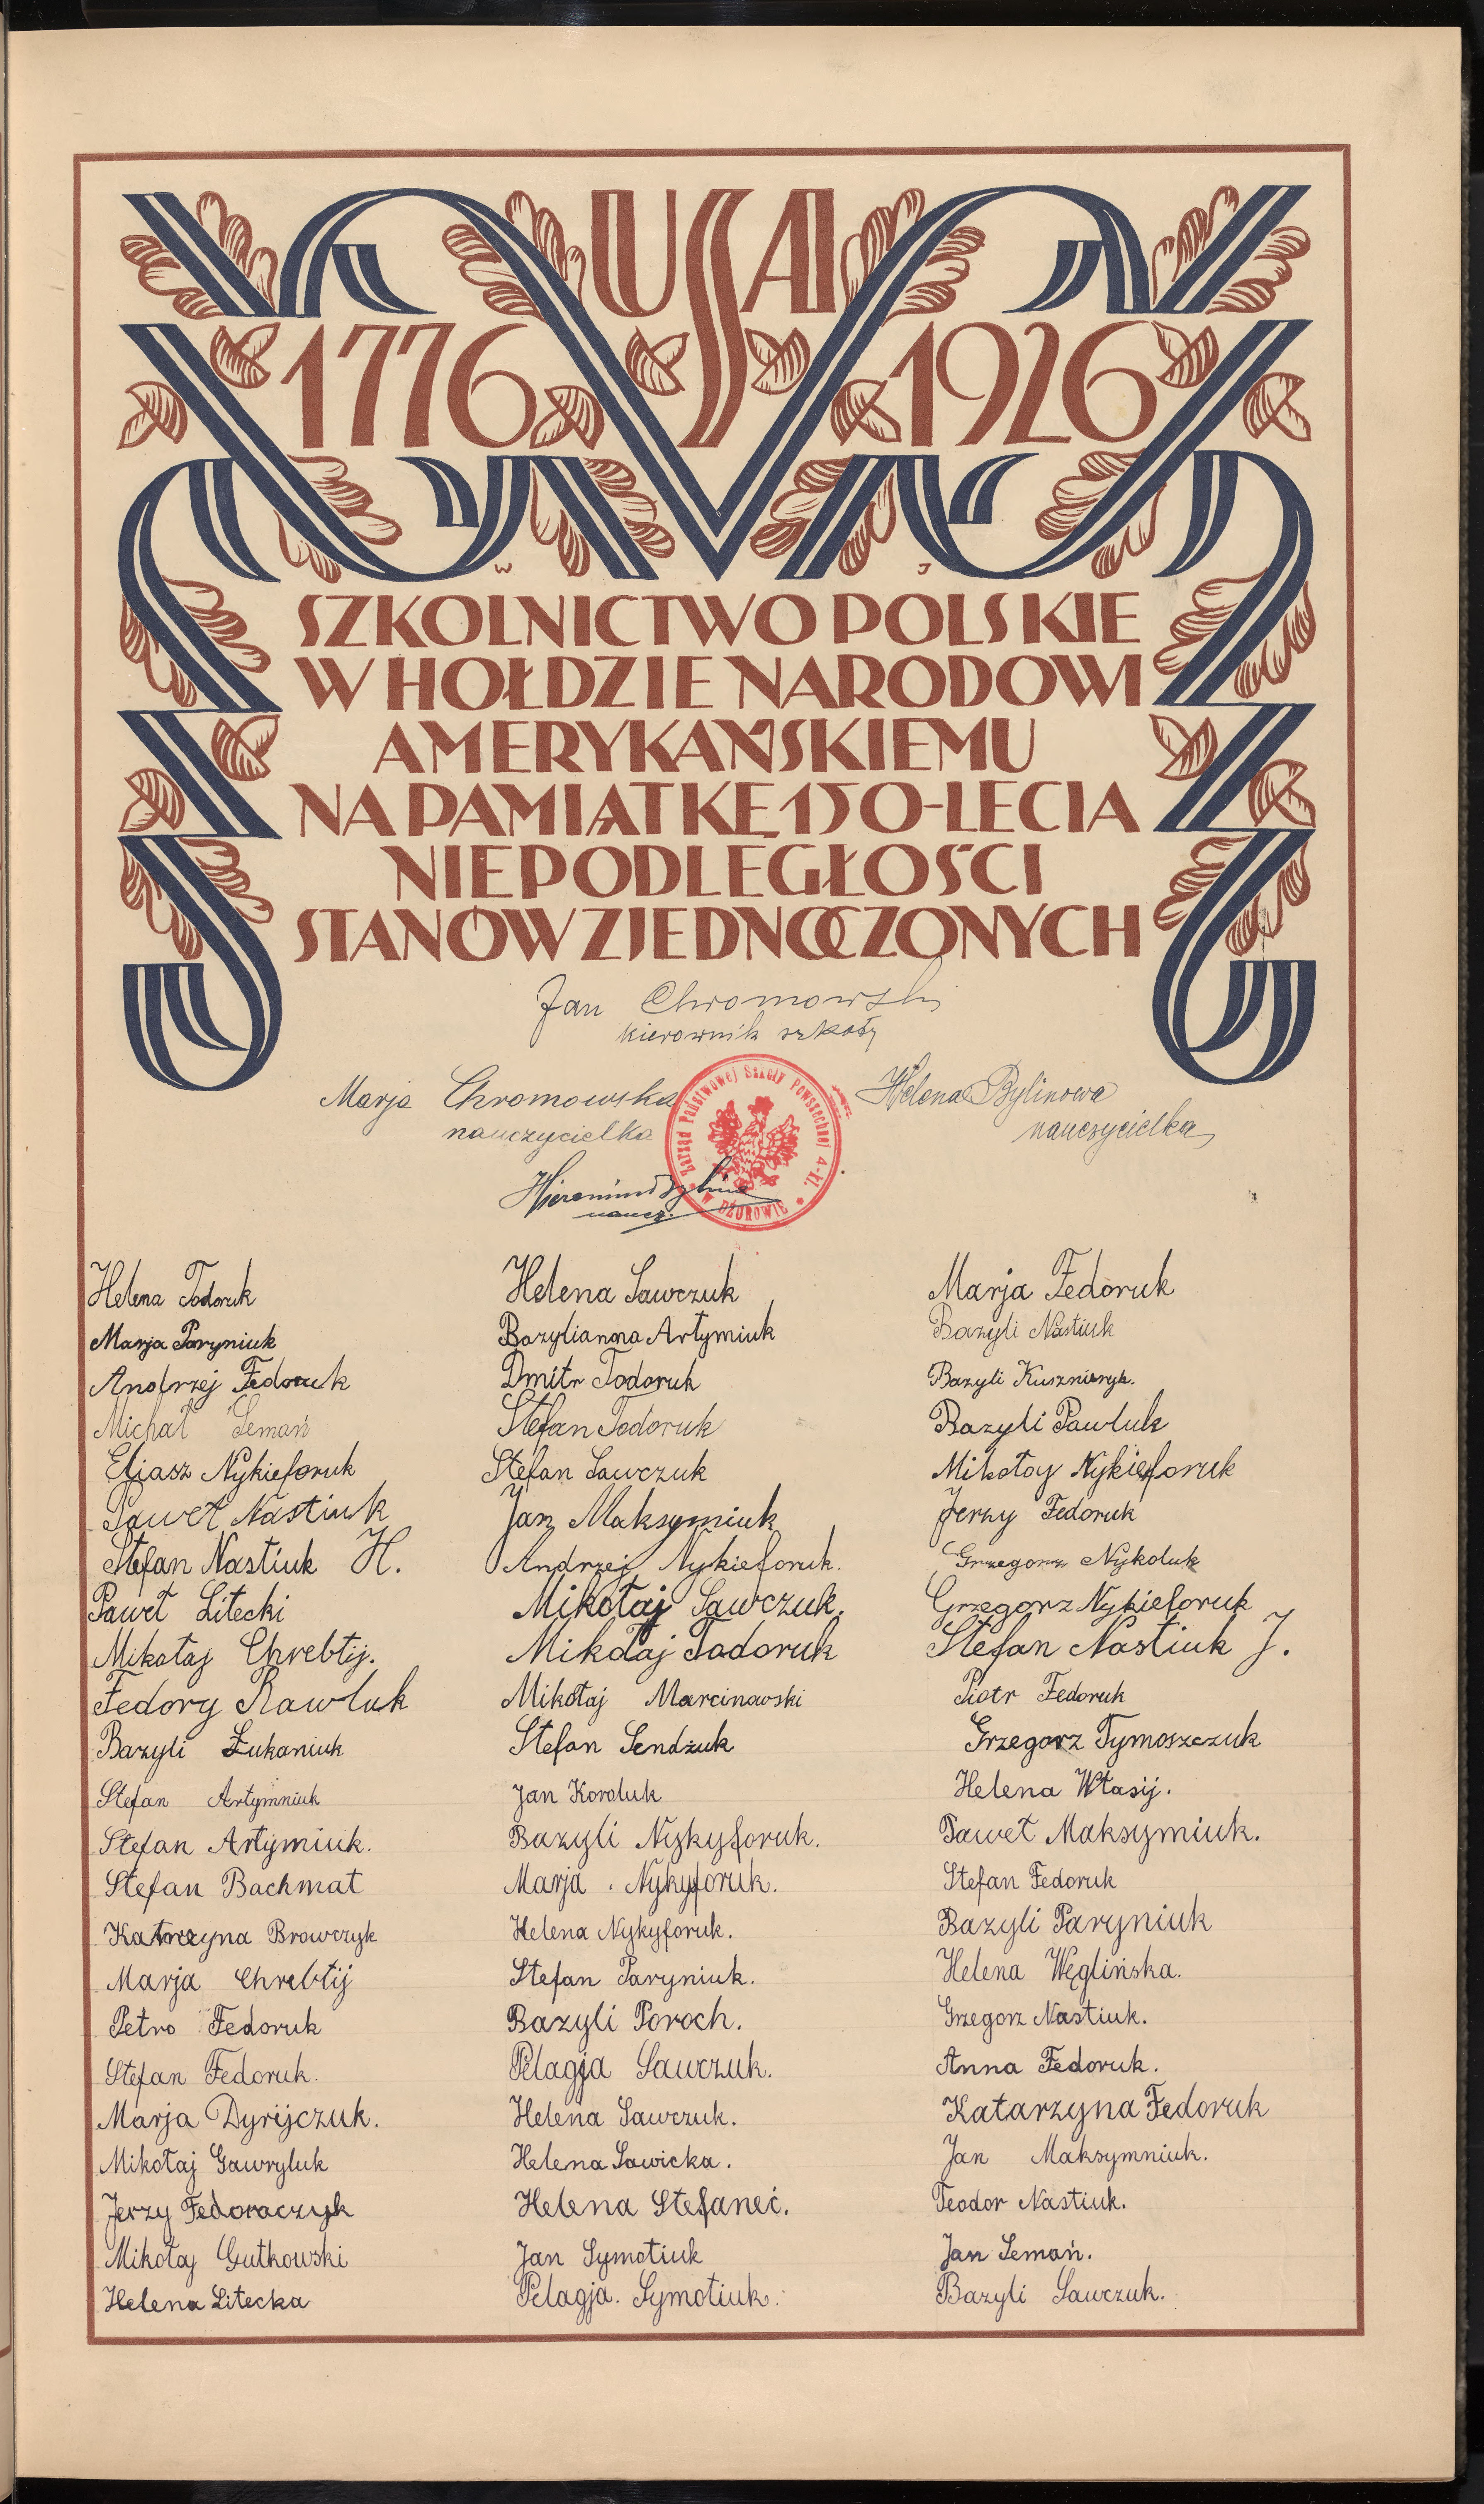 USA
1776 1926
W J
SZKOLNICTWO POLSKIE
W HOŁDZIE NARODOWI
AMERYKAŃSKIEMU
NA PAMIĄTKĘ 150-LECIA
NIEPODLEGŁOŚCI
STANÓW ZJEDNOCZONYCH
Jan Chromowski
kierownik szkoły
Marja Chromowska
nauczycielka
Helena Bylinowa
nauczycielka
Zarząd Państwowej Szkoły Powszechnej 4-kl.
W DŻUROWIE
Hieronim Bylina
naucz.
Helena Todoruk
Marja Paryniuk
Andrzej Fedoruk
Michał Semań
Eliasz Nykieforuk
Paweł Nastiuk
Stefan Nastiuk H.
Paweł Litecki
Mikołaj Chrebtij.
Fedory Rawluk
Bazyli Łukaniuk
Stefan Artymniuk
Stefan Artymiuk.
Stefan Bachmat
Katrzyna Browczyk
Marja Chrebtij
Petro Fedoruk
Stefan Fedoruk.
Marja Dyrijczuk.
Mikołaj Gawryluk
Jerzy Fedoraczyk
Mikołaj Gutkowski
Helena Litecka
Helena Sawczuk
Bazylianna Artymiuk
Dmitr Todoruk
Stefan Todoruk
Stefan Sawczuk
Jan Maksymiuk
Andrzej Nykieforuk.
Mikołaj Sawczuk.
Mikołaj Todoruk
Mikołaj Marcinowski
Stefan Sendżuk
Jan Koroluk
Bazyli Nykyforuk.
Marja Nykyforuk.
Helena Nykyforuk.
Stefan Paryniuk.
Bazyli Poroch.
Pelagja Sawczuk.
Helena Sawczuk.
Helena Sawicka.
Helena Stefaneć.
Jan Symotiuk
Pelagja. Symotiuk.
Marja Fedoruk
Bazyli Nastiuk
Bazyli Kuszniryk.
Bazyli Pawluk
Mikołay Nykieforuk
Jerzy Fedoruk
Grzegorz Nykoluk
Grzegorz Nykieforuk
Stefan Nastiuk J.
Piotr Fedoruk
Grzegorz Tymoszczuk
Helena Własij.
Paweł Maksymiuk.
Stefan Fedoruk
Bazyli Paryniuk
Helena Węglińska.
Grzegorz Nastiuk.
Anna Fedoruk.
Katarzyna Fedoruk
Jan Maksymniuk.
Teodor Nastiuk.
Jan Semań.
Bazyli Sawczuk.